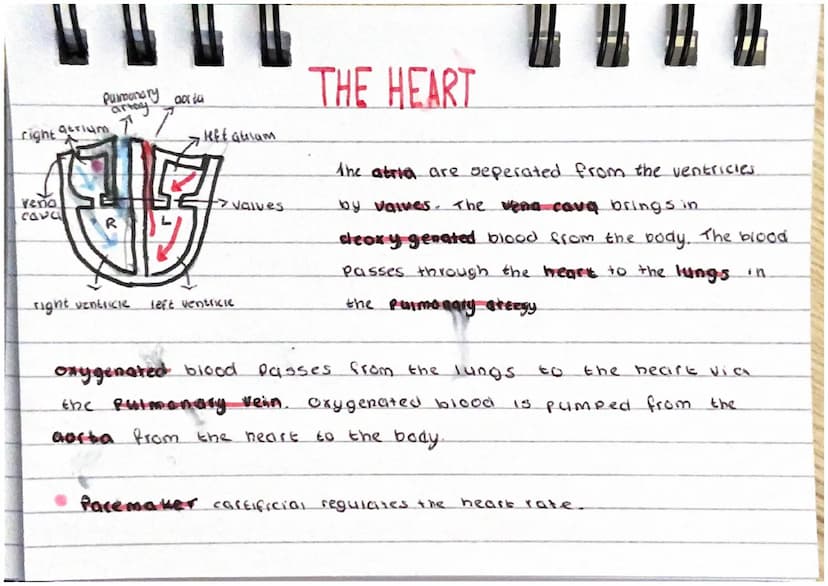 THE HEART
pulmonary
artery
aorta
right atrium
left atrium
The atria are seperated from the ventricles
vena
cava
valves
R
L
by valves. The vena cava brings in
deoxygenated blood from the body. The blood
passes through the heart to the lungs in
right ventricle
left ventricle
the pulmonary artery
oxygenated blood passes from the lungs to the heart via
the pulmonary vein. Oxygenated blood is pumped from the
aorta from the heart to the body.
Pacemaker cartificial regulates the heart rate.